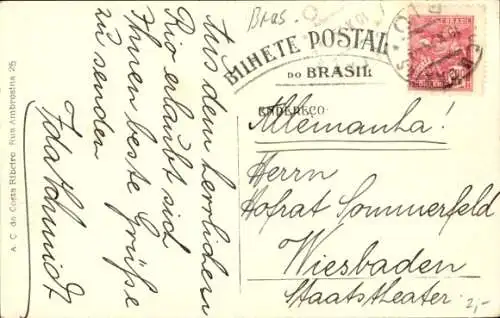 Bras
BILHETE POSTAL
DO BRASIL
ENDEREÇO
BRASIL
RIO
Allemanha!
Herrn
Hofrat Sommerfeld
Wiesbaden
Staatstheater
2,-
Aus dem herrlichen
Rio erlaubt sich
Ihnen beste Grüße
zu senden
Ida Schmidt
A. C. da Costa Ribeiro Rua Ambrosina 25